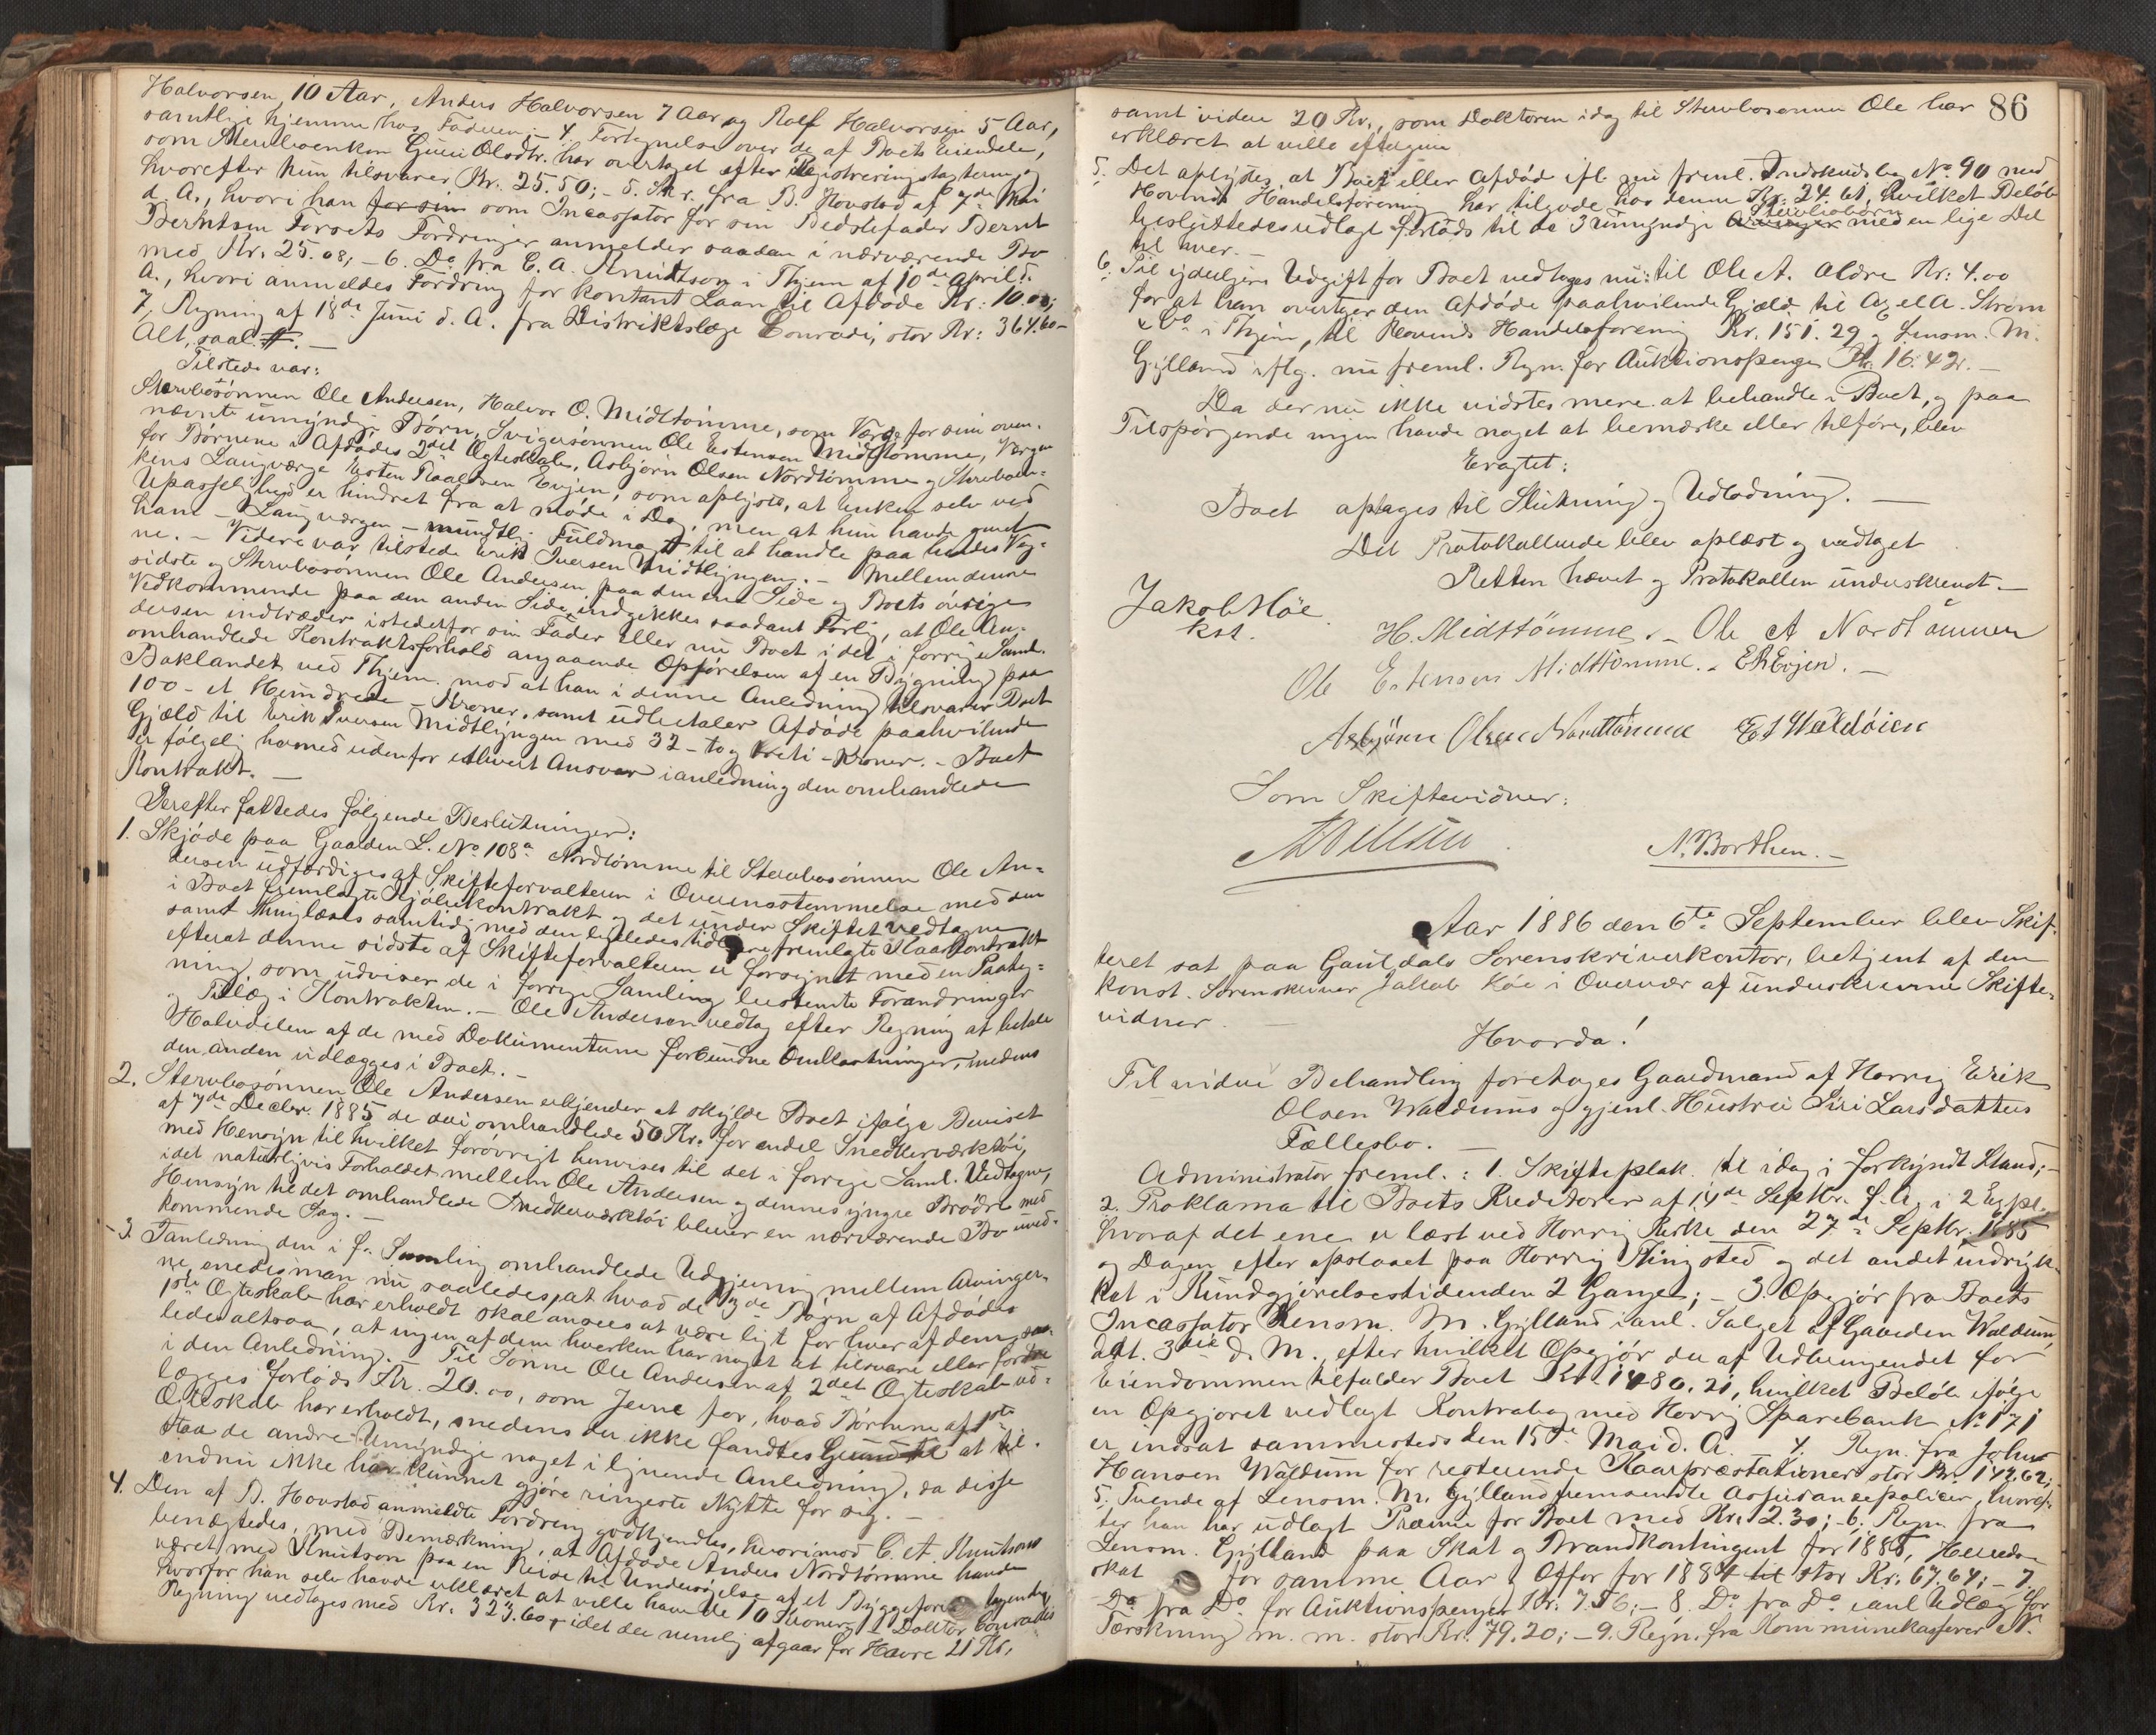 Halvorsen, 10 Aar, Anders Halvorsen 7 Aar og Rolf Halvorsen 5 Aar,
samtlige hjemme hos Faderen; – 4. Fortegnelse over de af Boets Eiendele,
som Sterboenken Guri Olsdtr. har overtaget efter Registreringstaxterne, og
hvorefter hun tilsvarer Kr. 25.50; – 5. Skr. fra B. Hovstad af 7de Mai
d. A., hvori han for sin som Incassator for sin Bedstefader Bernt
Berntsen Forsets Fordringer anmelder saadan i nærværende Bo
med Kr. 25.08; – 6. Do fra C. A. Knudtson i Thjem af 10de April d.
A., hvori anmeldes Fordring for kontant Laan til Afdøde Kr: 10.00;
7, Regning af 18de Juni d. A. fra Distriktslæge Conradi, stor Kr: 364.60 –
Alt, saal.
Tilstede var:
Sterbosønnen Ole Andersen, Halvor O. Midttømme, som Værge for sine oven-
nævnte umyndige Børn, Svigersønnen Ole Estensen Midttømme, Værgen
for Børnene i Afdødes 2det Ægteskab, Asbjørn Olsen Nordtømme og Sterboen-
kens Laugværge Esten Evjen, som oplyste, at Enken selv ved
Upasselighed er hindret fra at møde i Dag, men at hun havde givet
ham – Laugværgen – mundtlig Fuldmagt til at handle paa hendes Veg-
ne. – Videre var tilstede Erik Iversen Midtlyngen. – Mellem denne
sidste og Sterbosønnen Ole Andersen paa den ene Side og Boets øvrige
Vedkommende paa den anden Side indgikkes saadant Forlig, at Ole An-
dersen indtræder istedetfor sin Fader eller nu Boet i det i forrige Saml.
omhandlede Kontraktsforhold angaaende Opførelsen af en Bygning paa
Baklandet ved Thjem. mod at han i denne Anledning tilsvarer Boet
100 – et Hundrede – Kroner, samt udbetaler Afdøde paahvilende
Gjæld til Erik Iversen Midtlyngen med 32 – to og treti – Kroner. – Boet
er følgelig hermed udenfor ethvert Ansvar i anledning den omhandlede
Kontrakt. –
Derefter fattedes følgende Beslutninger:
1. Skjøde paa Gaarden L. No 108a Nordtømme til Sterbosønnen Ole An-
dersen udfærdiges af Skifteforvalteren i Overensstemmelse med den
i Boet fremlagte Kjøbekontrakt og det under Skiftet vedtagne
samt thinglæses samtidig med den ligeledes tidligere fremlagte Kaarkontrakt
efterat denne sidste af Skifteforvalteren er forsynet med en Paateg-
ning, som udviser de i forrige Samling bestemte Forandringer
og Tillæg i Kontrakten. – Ole Andersen vedtog efter Regning at betale
Halvdelen af de med Dokumenterne forbundne Omkostninger, medens
den anden udlægges i Boet. –
2. Sterbosønnen Ole Andersen erkjender at skylde Boet ifølge Beviset
af 7de Decbr. 1885 de deri omhandlede 50 Kr. for endel Snedkerværktøi,
med Hensyn til hvilket forøvrigt henvises til det i forrige Saml. Vedtagne,
idet naturligvis Forholdet mellem Ole Andersen og dennes yngre Brødre med
Hensyn til det omhandlede Snedkerværktøi bliver en nærværende Bo uved-
kommende Sag. –
3. I anledning den i f. Samling omhandlede Udjævning mellem Arvinger-
ne enedes man nu saaledes, at hvad de Børn af Afdødes
1ste Ægteskab har erholdt skal ansees at være ligt for hver af dem, saa-
ledes altsaa, at ingen af dem hverken har noget at tilsvare eller fordre
i den Anledning. – Til Sønne Ole Andersen af 2det Ægteskab ud-
lægges forlods Kr. 20.00, som Jevne for, hvad Børnene af 1ste
Ægteskab har erholdt, medens der ikke fandtes Grund til at til-
staa de andre Umyndige noget i lignende Anledning, da disse
endnu ikke har kunnet gjøre ringeste Nytte for sig. –
4. Den af B. Hovstad anmeldte Fordring godkjendtes, hvorimod C. A. Knutsons
benægtedes, med Bemærkning, at Afdøde Anders Nordtømme havde
været med Knutson paa en Reise til Undersøgelse af et
hvorfor han selv havde erklæret at ville have de 10 Kroner. Doktor Conradis
Regning vedtages med Kr. 323.60, idet der nemlig afgaar for Havre 21 Kr.,
86
samt videre 20 Kr., som Doktoren idag til Sterbosønnen Ole har
erklæret at ville eftergive.
5. Det oplystes, at Boet eller Afdød ifl. nu freml. Indskudsbog No 90 med
Hovinds Handelsforening har tilgode hos denne Kr. 24.61, hvilket Beløb
besluttedes udlagt forlods til de 3 umyndige Arvinger Sterbobørn med en lige Del
til hver. –
6. Til ydeligere Udgift for Boet vedtoges nu: til Ole A. Aldre Kr: 4.00
for at han overtager den Afdøde paahvilende Gjæld til A. Strøm
& Co i Thjem, til Hovinds Handelsforening Kr. 151.29 og Lensm. M.
Gylland iflg. nu freml. Regn. for Auktionspenge Kr. 16.42. –
Da der nu ikke vidstes mere at behandle i Boet, og paa
Tilspørgende ingen havde noget at bemærke eller tilføre, blev
Eragtet:
Boet optages til Slutning og Udlodning. –
Det Protokollerede blev oplæst og vedtaget
Retten hævet og Protokollen underskrevet. –
Jakob Høe
kst.
H. Midttömme. – Ole A Nordtömmen
Ole Estensen Midttömme. – E R Evjen. –
Asbjörn Olsen Nordtömme
Som Skiftevidner:
N. Borthen. –
Aar 1886 den 6te September blev Skif-
teret sat paa Guldals Sorenskriverkontor, betjent af den
konst. Sorenskriver Jakob Høe i Overvær af underskrevne Skifte-
vidner. –
Hvorda!
Til videre Behandling foretoges Gaardmand af Horrig Erik
Olsen Waldums og gjenl. Hustru Siri Larsdatters
Fællesbo. –
Administrator freml.: 1. Skifteplak. til idag i forkyndt Stand; –
2. Proklama til Boets Kreditorer af 14de Septbr. f. A. i 2 Expl.
hvoraf det ene er læst ved Horrig Kirke den 27de Septbr. 1885
og Dagen efter opslaaet paa Horrig Thingsted og det andet indryk-
ket i Kundgjørelsestidenden 2 Gange; – 3. Opgjør fra Boets
Incassator Lensm. M. Gylland i anl. Salget af Gaarden Waldum,
dat. 3die d. M., efter hvilket Opgjør der af Udbringendet for
Eiendommen tilfalder Boet Kr. 1480.21, hvilket Beløb ifølge
en Opgjøret vedlagt Kontrabog med Horrig Sparebank No 171
er indsat sammesteds den 15de Mai d. A. 4. Regn. fra Johns
Hansen Waldum for resterende Kaarpræstationer stor Kr. 142.62; –
5. Tvende af Lensm. M. Gylland fremsendte Assurancepolicer, hvoref-
ter han har udlagt Præmie for Boet med Kr. 12.30; – 6. Regn. fra
Lensm. Gylland paa Skat og Brandkontingent for 1885, Herreds-
skat for samme Aar og Offer for 1884 til stor Kr. 67.64; – 7.
Do fra Do for Auktionspenger Kr. 7.56; – 8. Do fra Do i anl Udlæg for
Tærskning m. m. stor Kr. 79.20; – 9. Regn. fra Kommunekasserer N.